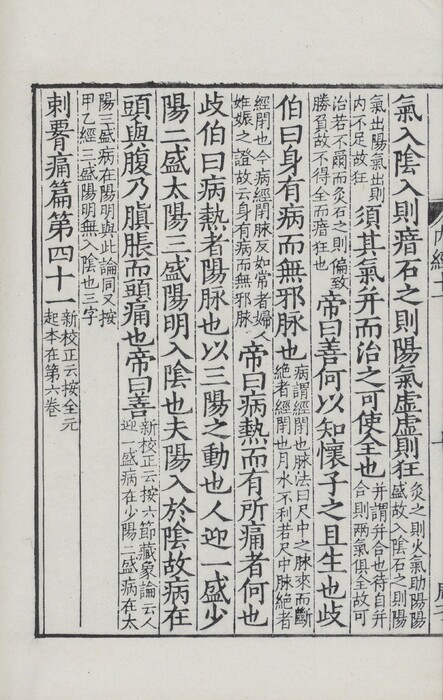 氣入陰入則瘖石之則陽氣虛虛則狂灸之則火氣助陽陽盛故入陰石之則陽
氣出陽氣出則内不足故狂須其氣并而治之可使全也并謂并合也待自并合則兩氣俱全故可
治若不爾而灸石之則偏致勝負故不得全而瘖狂也帝曰善何以知懷子之且生也歧
伯曰身有病而無邪脉也病謂經閉也脉法曰尺中之脉來而斷絶者經閉也月水不利若尺中脉絶者
經閉也今病經閉脉反如常者婦人姙娠之證故云身有病而無邪脉帝曰病熱而有所痛者何也
歧伯曰病熱者陽脉也以三陽之動也人迎一盛少
陽二盛太陽三盛陽明入陰也夫陽入於陰故病在
頭與腹乃䐜脹而頭痛也帝曰善新校正云按六節藏象論云人迎一盛病在少陽二盛病在太
陽三盛病在陽明與此論同又按甲乙經三盛陽明無入陰也三字
刺𦝫痛篇第四十一新校正云按全元起本在第六卷